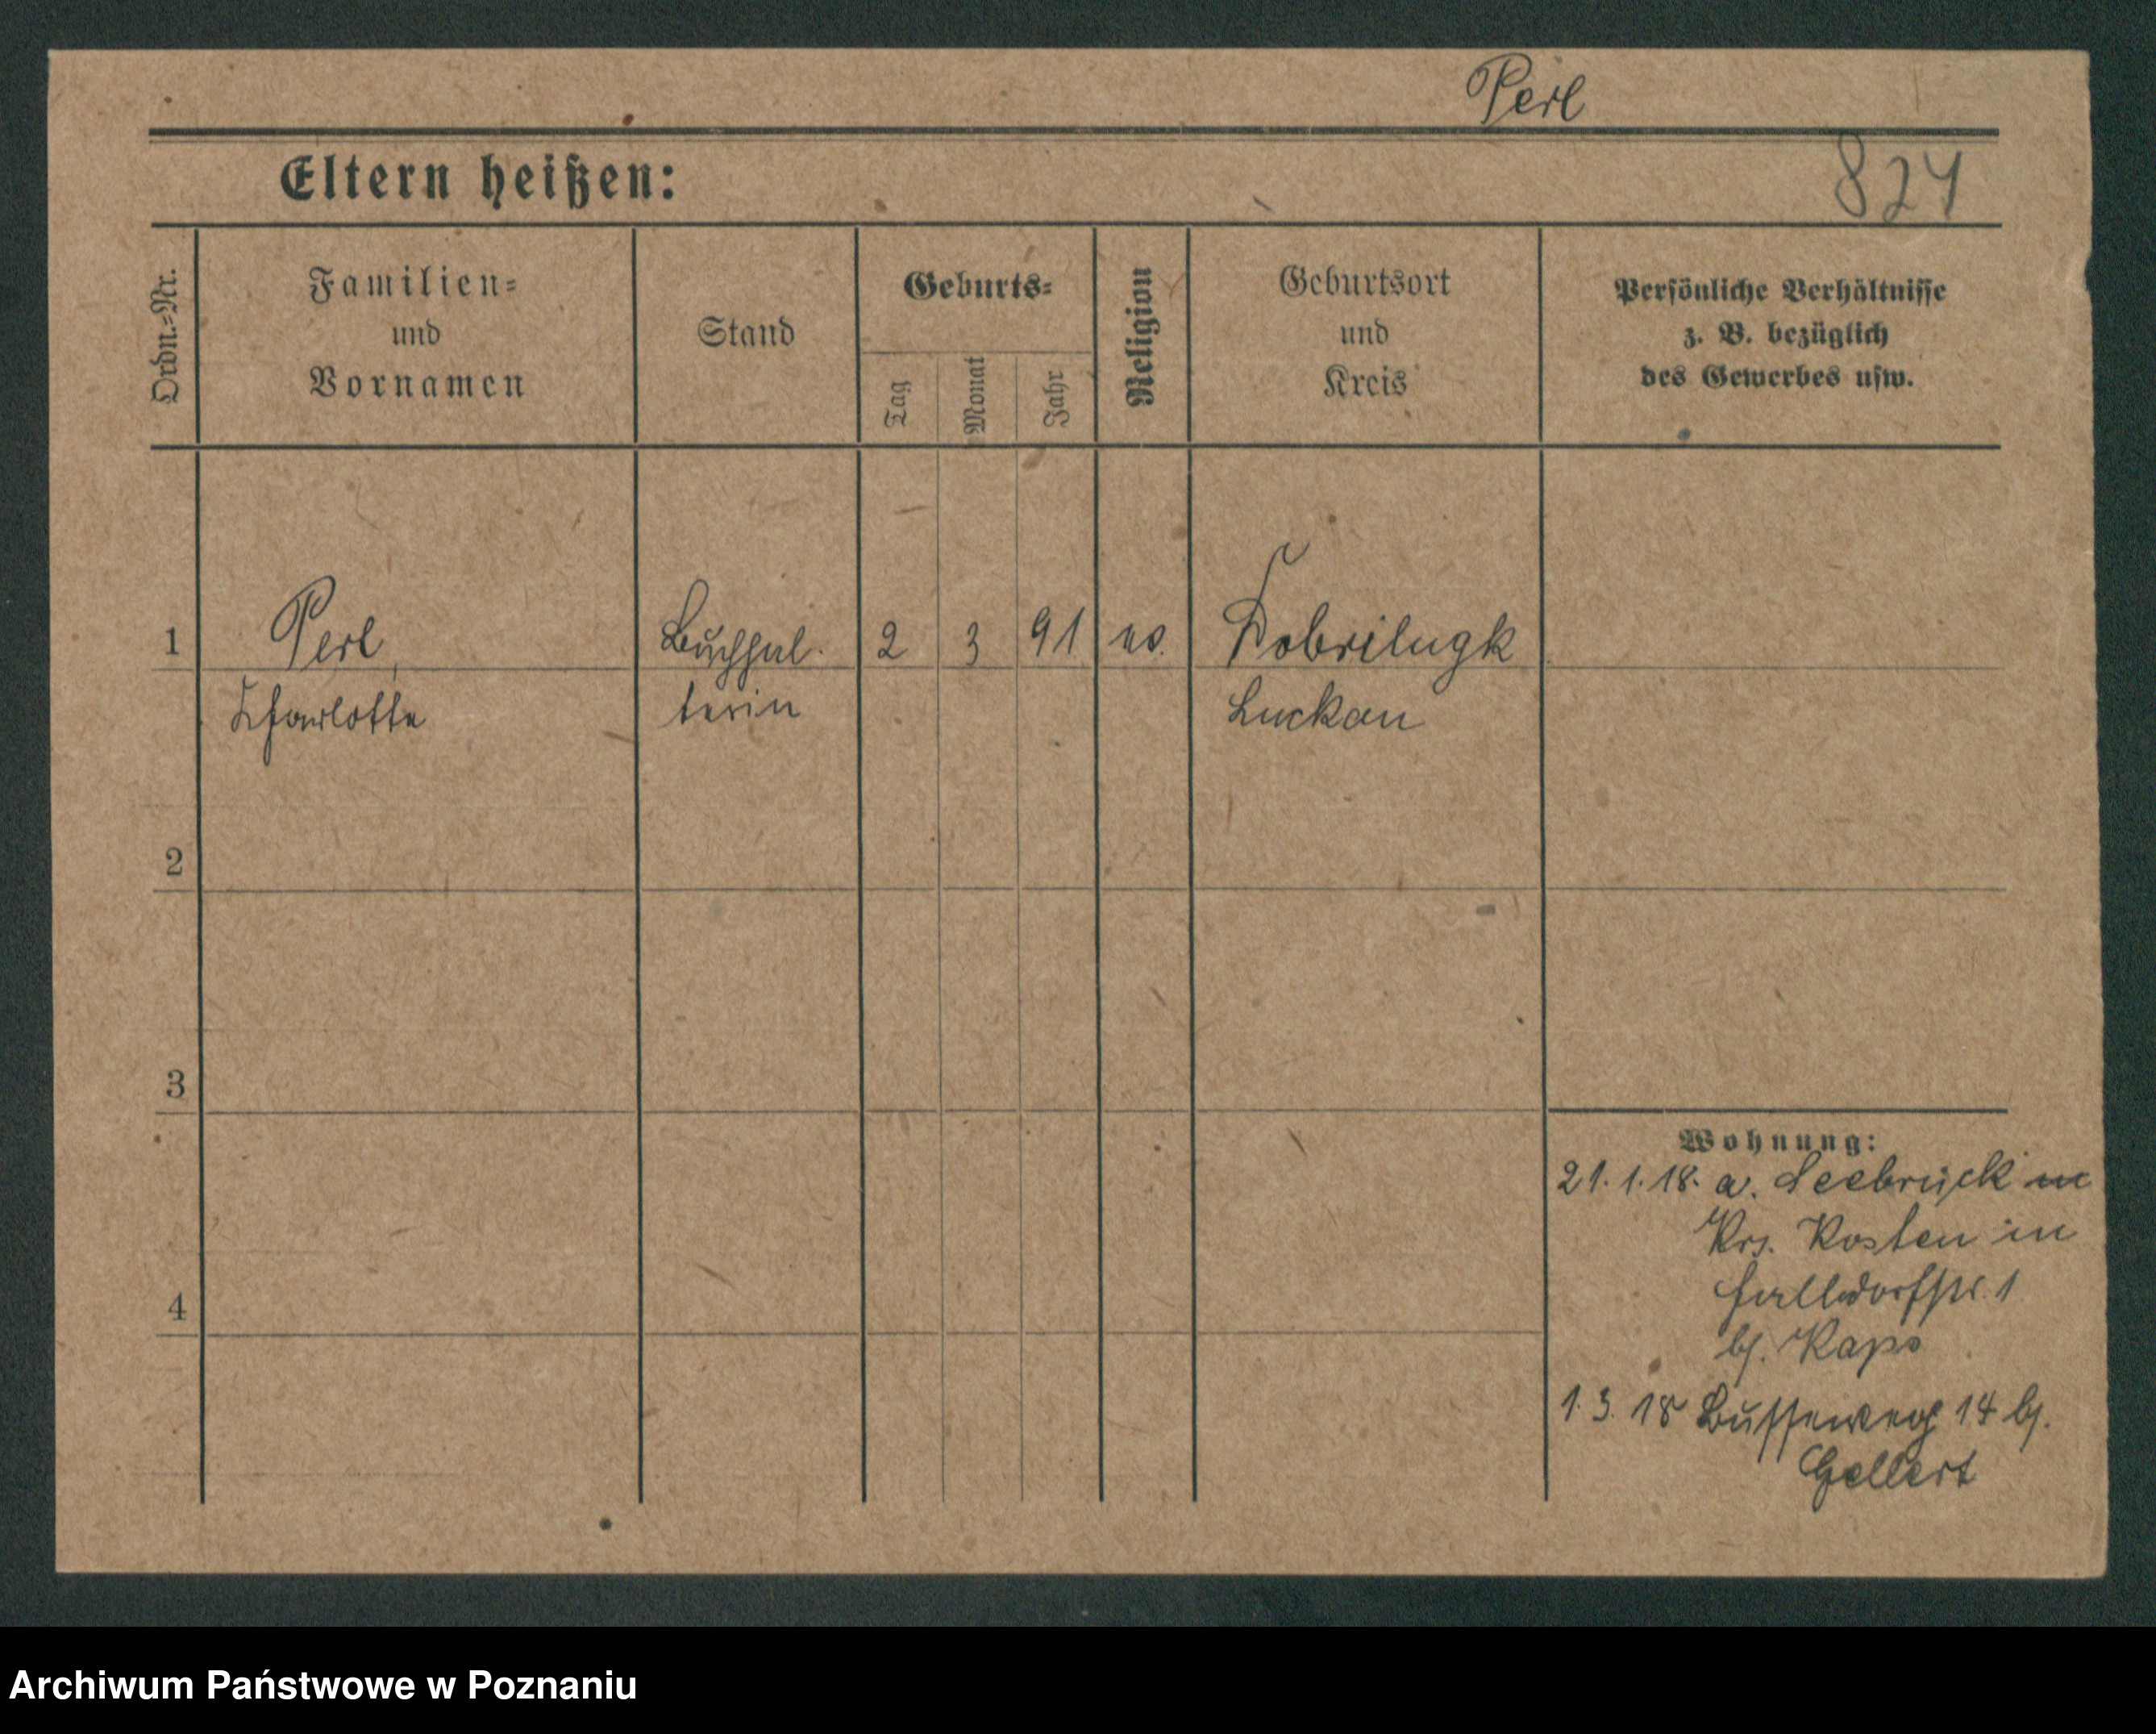 Perl
Eltern heißen:
824
Ordn.=Nr.
Familien=
und
Vornamen
Stand
Geburts=
Tag
Monat
Jahr
Religion
Geburtsort
und
Kreis
Persönliche Verhältnisse
z. B. bezüglich
des Gewerbes usw.
1 Perl, Buchhal. 2 3 91 ev. Dobrilugk
Charlotte terin Luckau
2
3
Wohnung:
21. 1. 18. a. Seebrück
Krs. Kosten in
4
1
bj. Kaps
1. 3. 18 Busseweg 14 bj.
Gellert
Archiwum Państwowe w Poznaniu